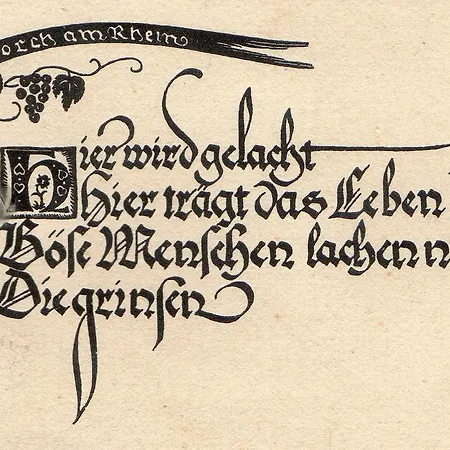 orch am Rhein
Hier wird gelacht
Hier trägt das Leben
Böse Menschen lachen n
Die grinsen